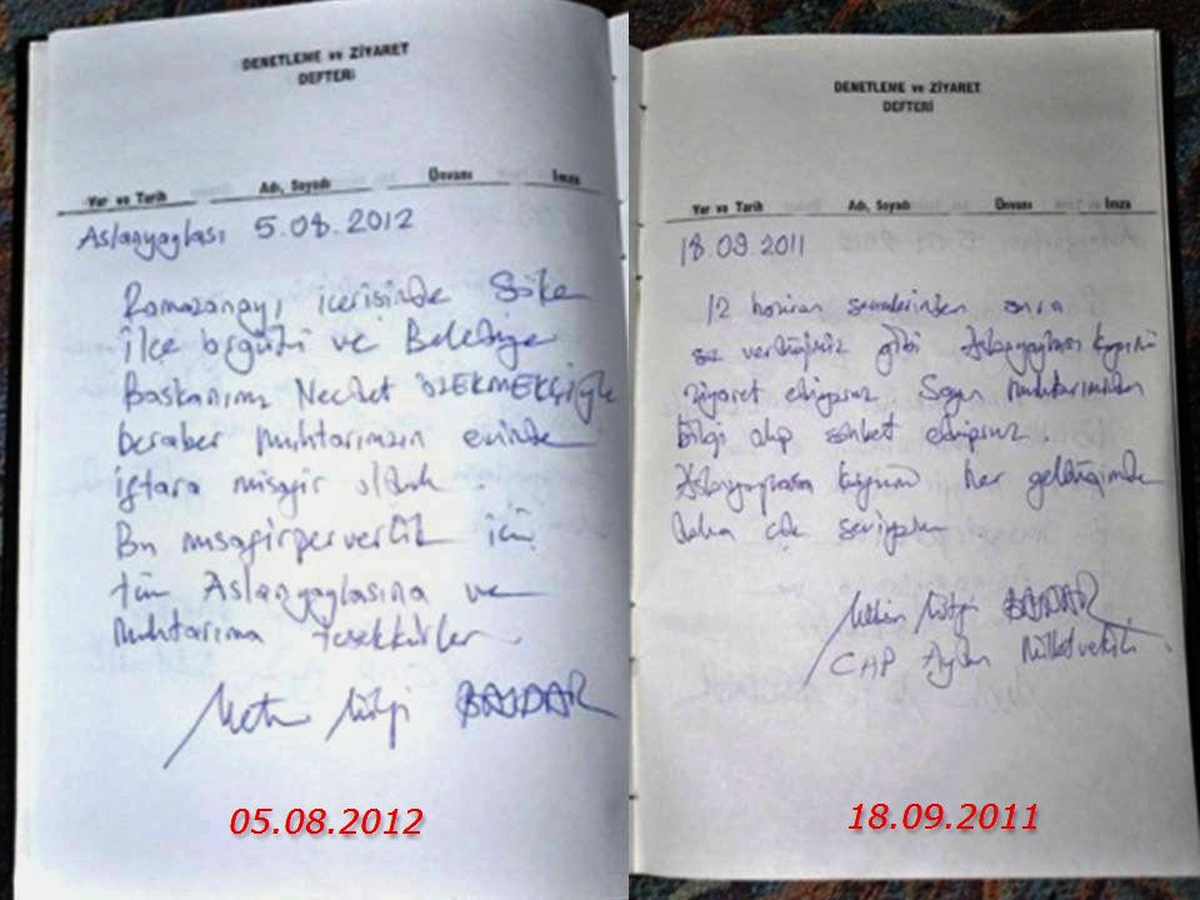 DENETLEME ve ZİYARET
DEFTERİ
Yer ve Tarih Adı, Soyadı Ünvanı İmza
Aslanyaylası 5.08.2012
Ramazanayı içerisinde Söke
İlçe örgütü ve Belediye
Başkanımız Necdet ÖZEKMEKÇİyle
beraber muhtarımızın evinde
iftara misafir olduk.
Bu misafirperverlik için
tüm Aslanyaylasına ve
muhtarıma teşekkürler.
Metin Lütfi BAYDAR
05.08.2012
DENETLEME ve ZİYARET
DEFTERİ
Yer ve Tarih Adı, Soyadı Ünvanı İmza
18.09.2011
12 haziran seçimlerinden sonra
söz verdiğimiz gibi Aslanyaylası köyünü
ziyaret ediyoruz Sayın muhtarımızdan
bilgi alıp sohbet ediyoruz.
Aslanyaylası köyünü her geldiğimde
daha çok seviyorum
Metin Lütfi BAYDAR
CHP Aydın Milletvekili.
18.09.2011